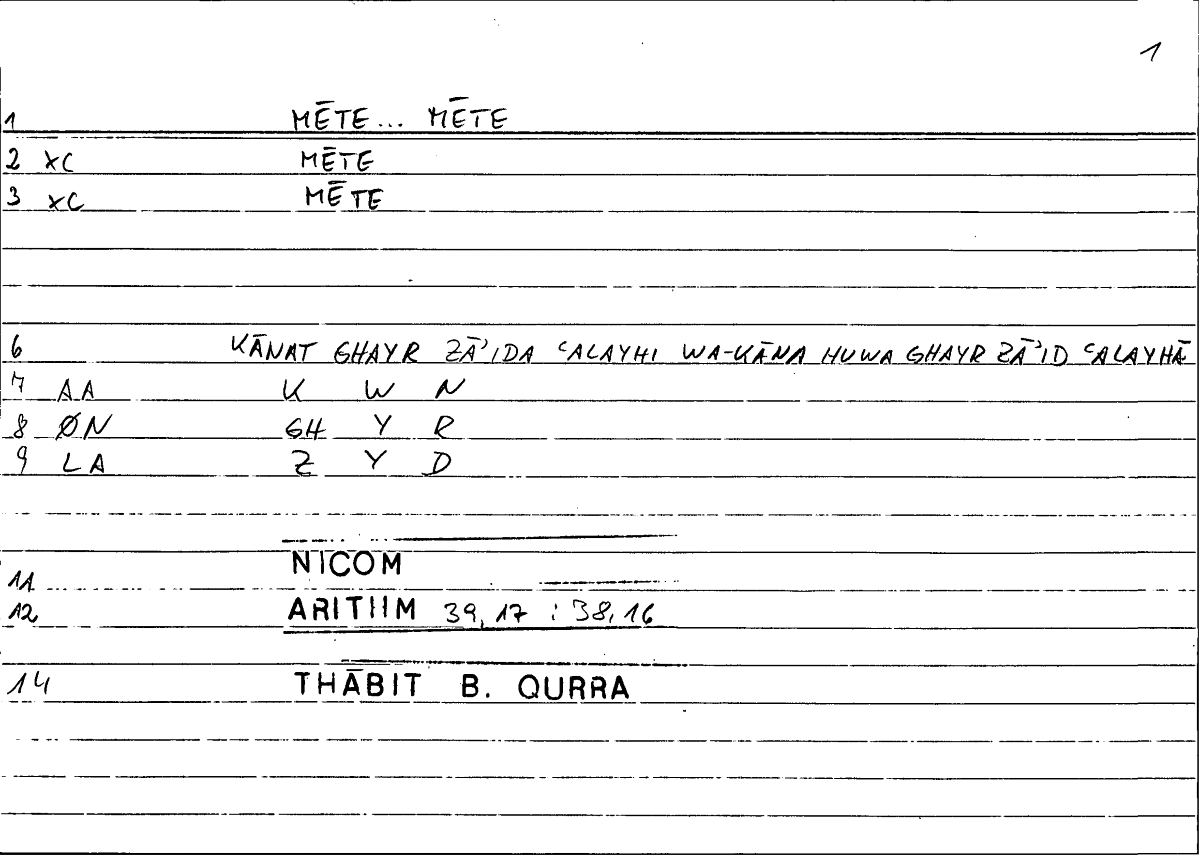 1
1 MĒTE... MĒTE
2 XC MĒTE
3 XC MĒTE
6 KĀNAT GHAYR ZĀʾIDA ʿALAYHI WA-KĀNA HUWA GHAYR ZĀʾID ʿALAYHĀ
7 AA K W N
8 ØN GH Y R
9 LA Z Y D
11 NICOM
12 ARITHM 39,17 : 38,16
14 THĀBIT B. QURRA